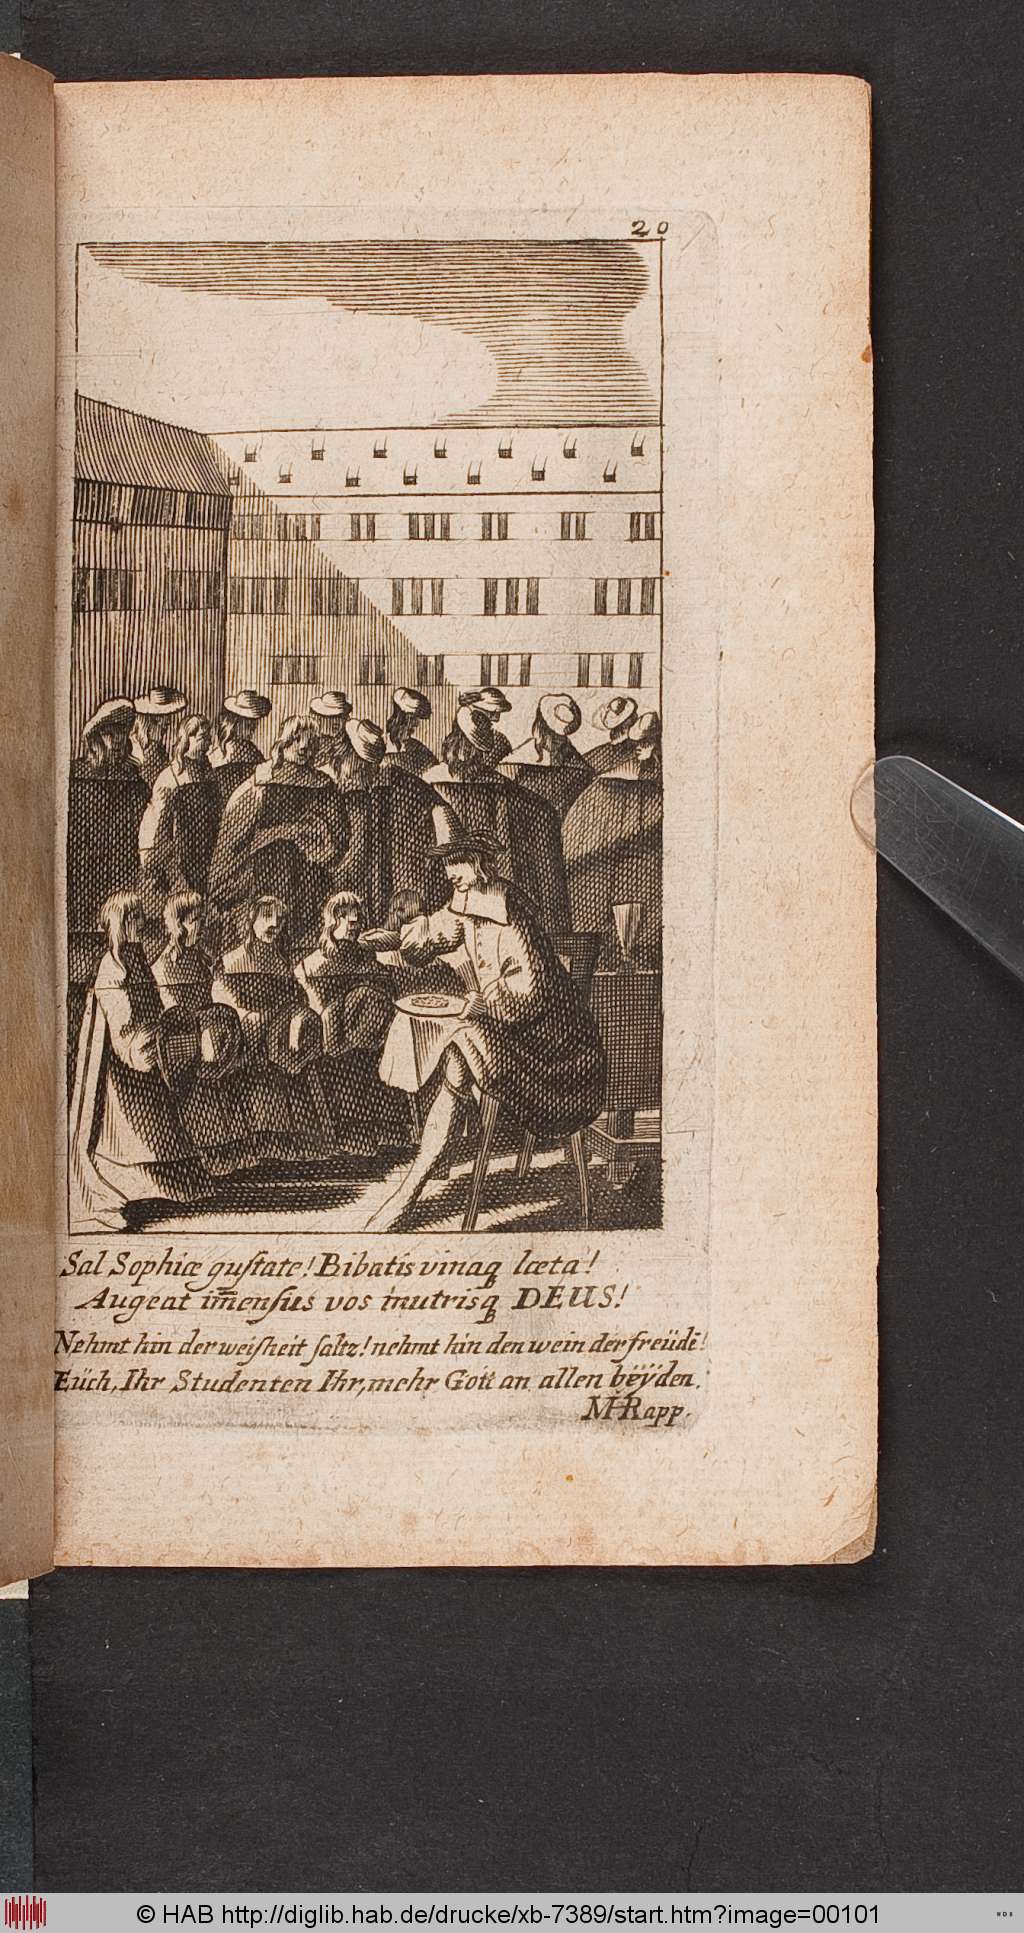 20
Sal Sophiæ guſtate! Bibatis vinaq læta!
Augeat im̅enſus vos mutrisq DEUS!
Nehmt hin der weiſheit ſaltz! nehmt hin den wein der freüdē!
Eüch, Ihr Studenten Ihr, mehr Gott an allen beÿden.
MHRapp.
© HAB http://diglib.hab.de/drucke/xb-7389/start.htm?image=00101